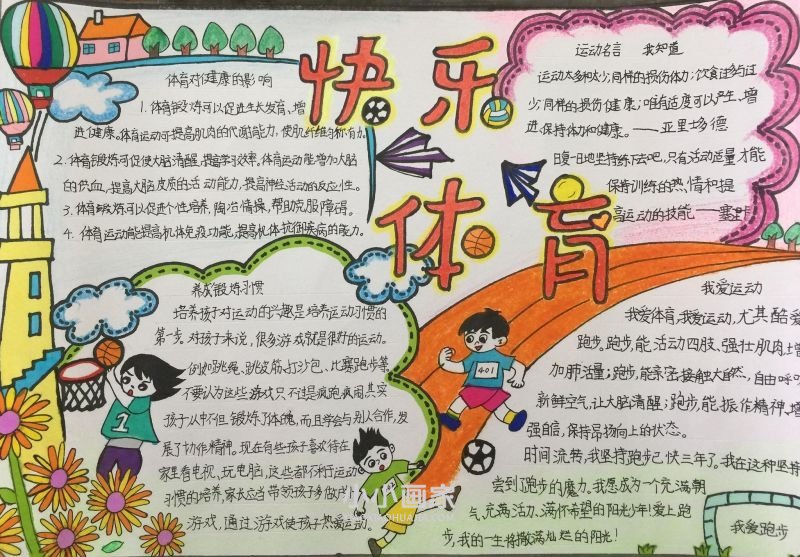 快乐
体育
体育对健康的影响
1. 体育锻炼可以促进生长发育、增
进健康。体育运动可提高肌肉的代谢能力,使肌纤维匀称有力。
2. 体育锻炼可促使大脑清醒,提高学习效率。体育运动能增加大脑
的供血,提高大脑皮质的活动能力,提高神经活动的反应性。
3. 体育锻炼可以促进个性培养,陶冶情操,帮助克服障碍。
4. 体育运动能提高机体免疫功能,提高机体抗御疾病的能力。
运动名言 我知道
运动太多和太少,同样的损伤体力;饮食过多与过
少,同样的损伤健康;唯有适度可以产生、增
进、保持体力和健康。——亚里士多德
日复一日地坚持练下去吧,只有活动适量才能
保持训练的热情和提
高运动的技能——塞涅卡
养成锻炼习惯
培养孩子对运动的兴趣是培养运动习惯的
第一步。对孩子来说,很多游戏就是很好的运动。
例如跳绳、跳皮筋、打沙包、比赛跑步等。
不要认为这些游戏只不过是疯跑疯闹,其实
孩子从中不但锻炼了体魄,而且学会与别人合作,发
展了协作精神。现在有些孩子喜欢待在
家里看电视、玩电脑,这些都不利于运动
习惯的培养,家长应当带领孩子多做户
游戏,通过游戏使孩子热爱运动。
1
401
我爱运动
我爱体育,我爱运动,尤其酷爱
跑步。跑步能活动四肢、强壮肌肉、增
加肺活量;跑步,能亲密接触大自然,自由呼吸
新鲜空气,让大脑清醒;跑步,能振作精神,增
强自信,保持昂扬向上的状态。
时间流转,我坚持跑步已快三年了。我在这种坚持
尝到了跑步的魔力。我愿成为一个充满朝
气、充满活力、满怀希望的阳光少年!爱上跑
步,我的一生将撒满灿烂的阳光!
我爱跑步